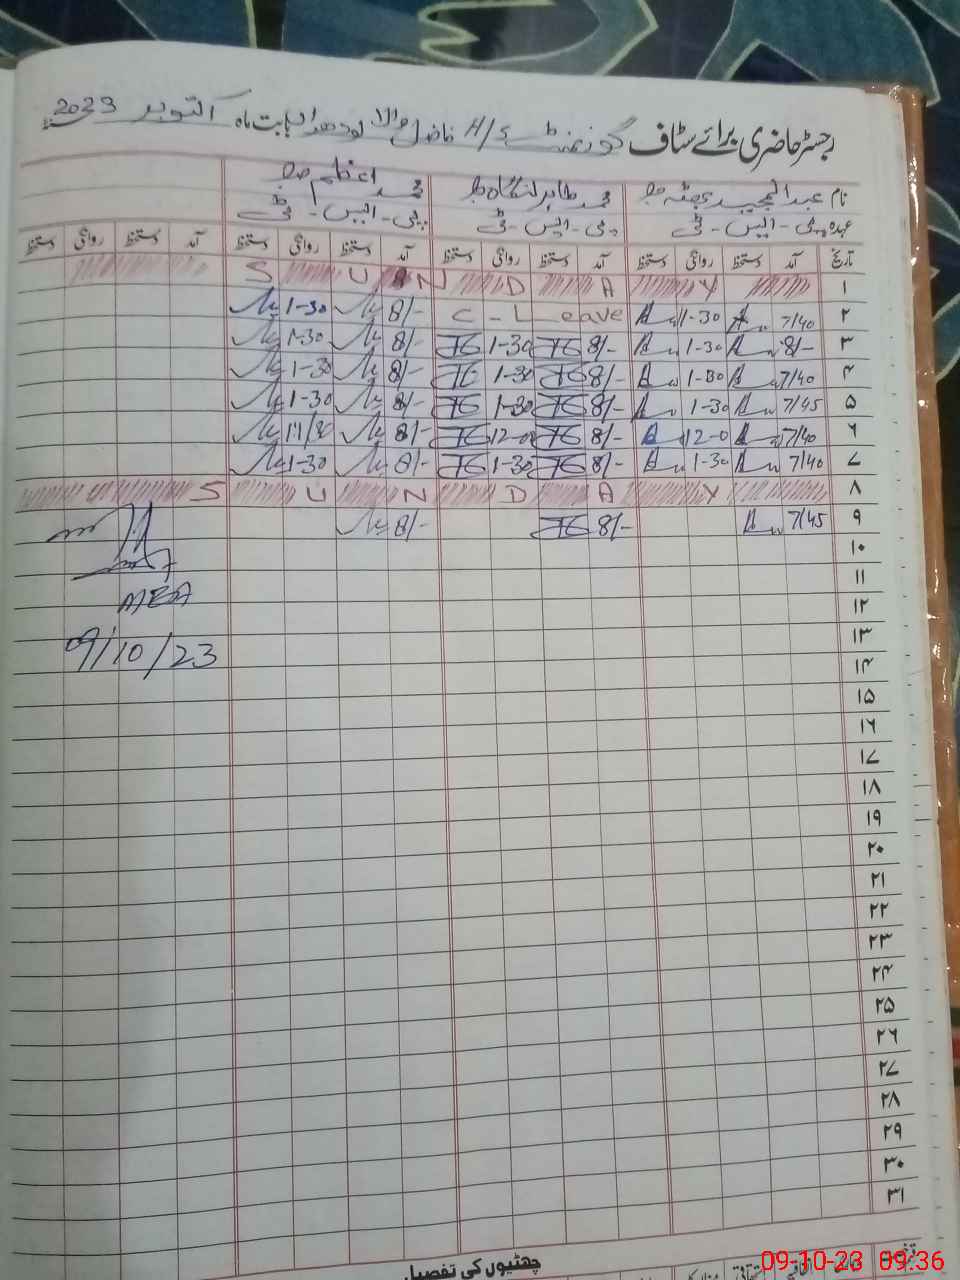 رجسٹر حاضری برائے سٹاف گورنمنٹ H/S فاضل والا لودھراں بابت ماہ اکتوبر 2023
نام عبدالمجید بھٹہ محمد طاہر لنگاہ محمد اعظم
عہدہ پی - ایس - ٹی پی - ایس - ٹی پی - ایس - ٹی
تاریخ آمد دستخط روانگی دستخط آمد دستخط روانگی دستخط آمد دستخط روانگی دستخط آمد دستخط روانگی دستخط
۱ S U N D A Y
۲ 7/40 1-30 C - Leave 8/- 1-30
۳ 8/- 1-30 8/- 1-30 8/- 1-30
۴ 7/40 1-30 8/- 1-30 8/- 1-30
۵ 7/45 1-30 8/- 1-30 8/- 1-30
۶ 7/40 12-0 8/- 12-00 8/- 11/30
۷ 7/40 1-30 8/- 1-30 8/- 1-30
۸ S U N D A Y
۹ 7/45 8/- 8/-
۱۰
۱۱
۱۲
MEA
۱۳
09/10/23
۱۴
۱۵
۱۶
۱۷
۱۸
۱۹
۲۰
۲۱
۲۲
۲۳
۲۴
۲۵
۲۶
۲۷
۲۸
۲۹
۳۰
۳۱
چھٹیوں کی تفصیل
09-10-23 09:36